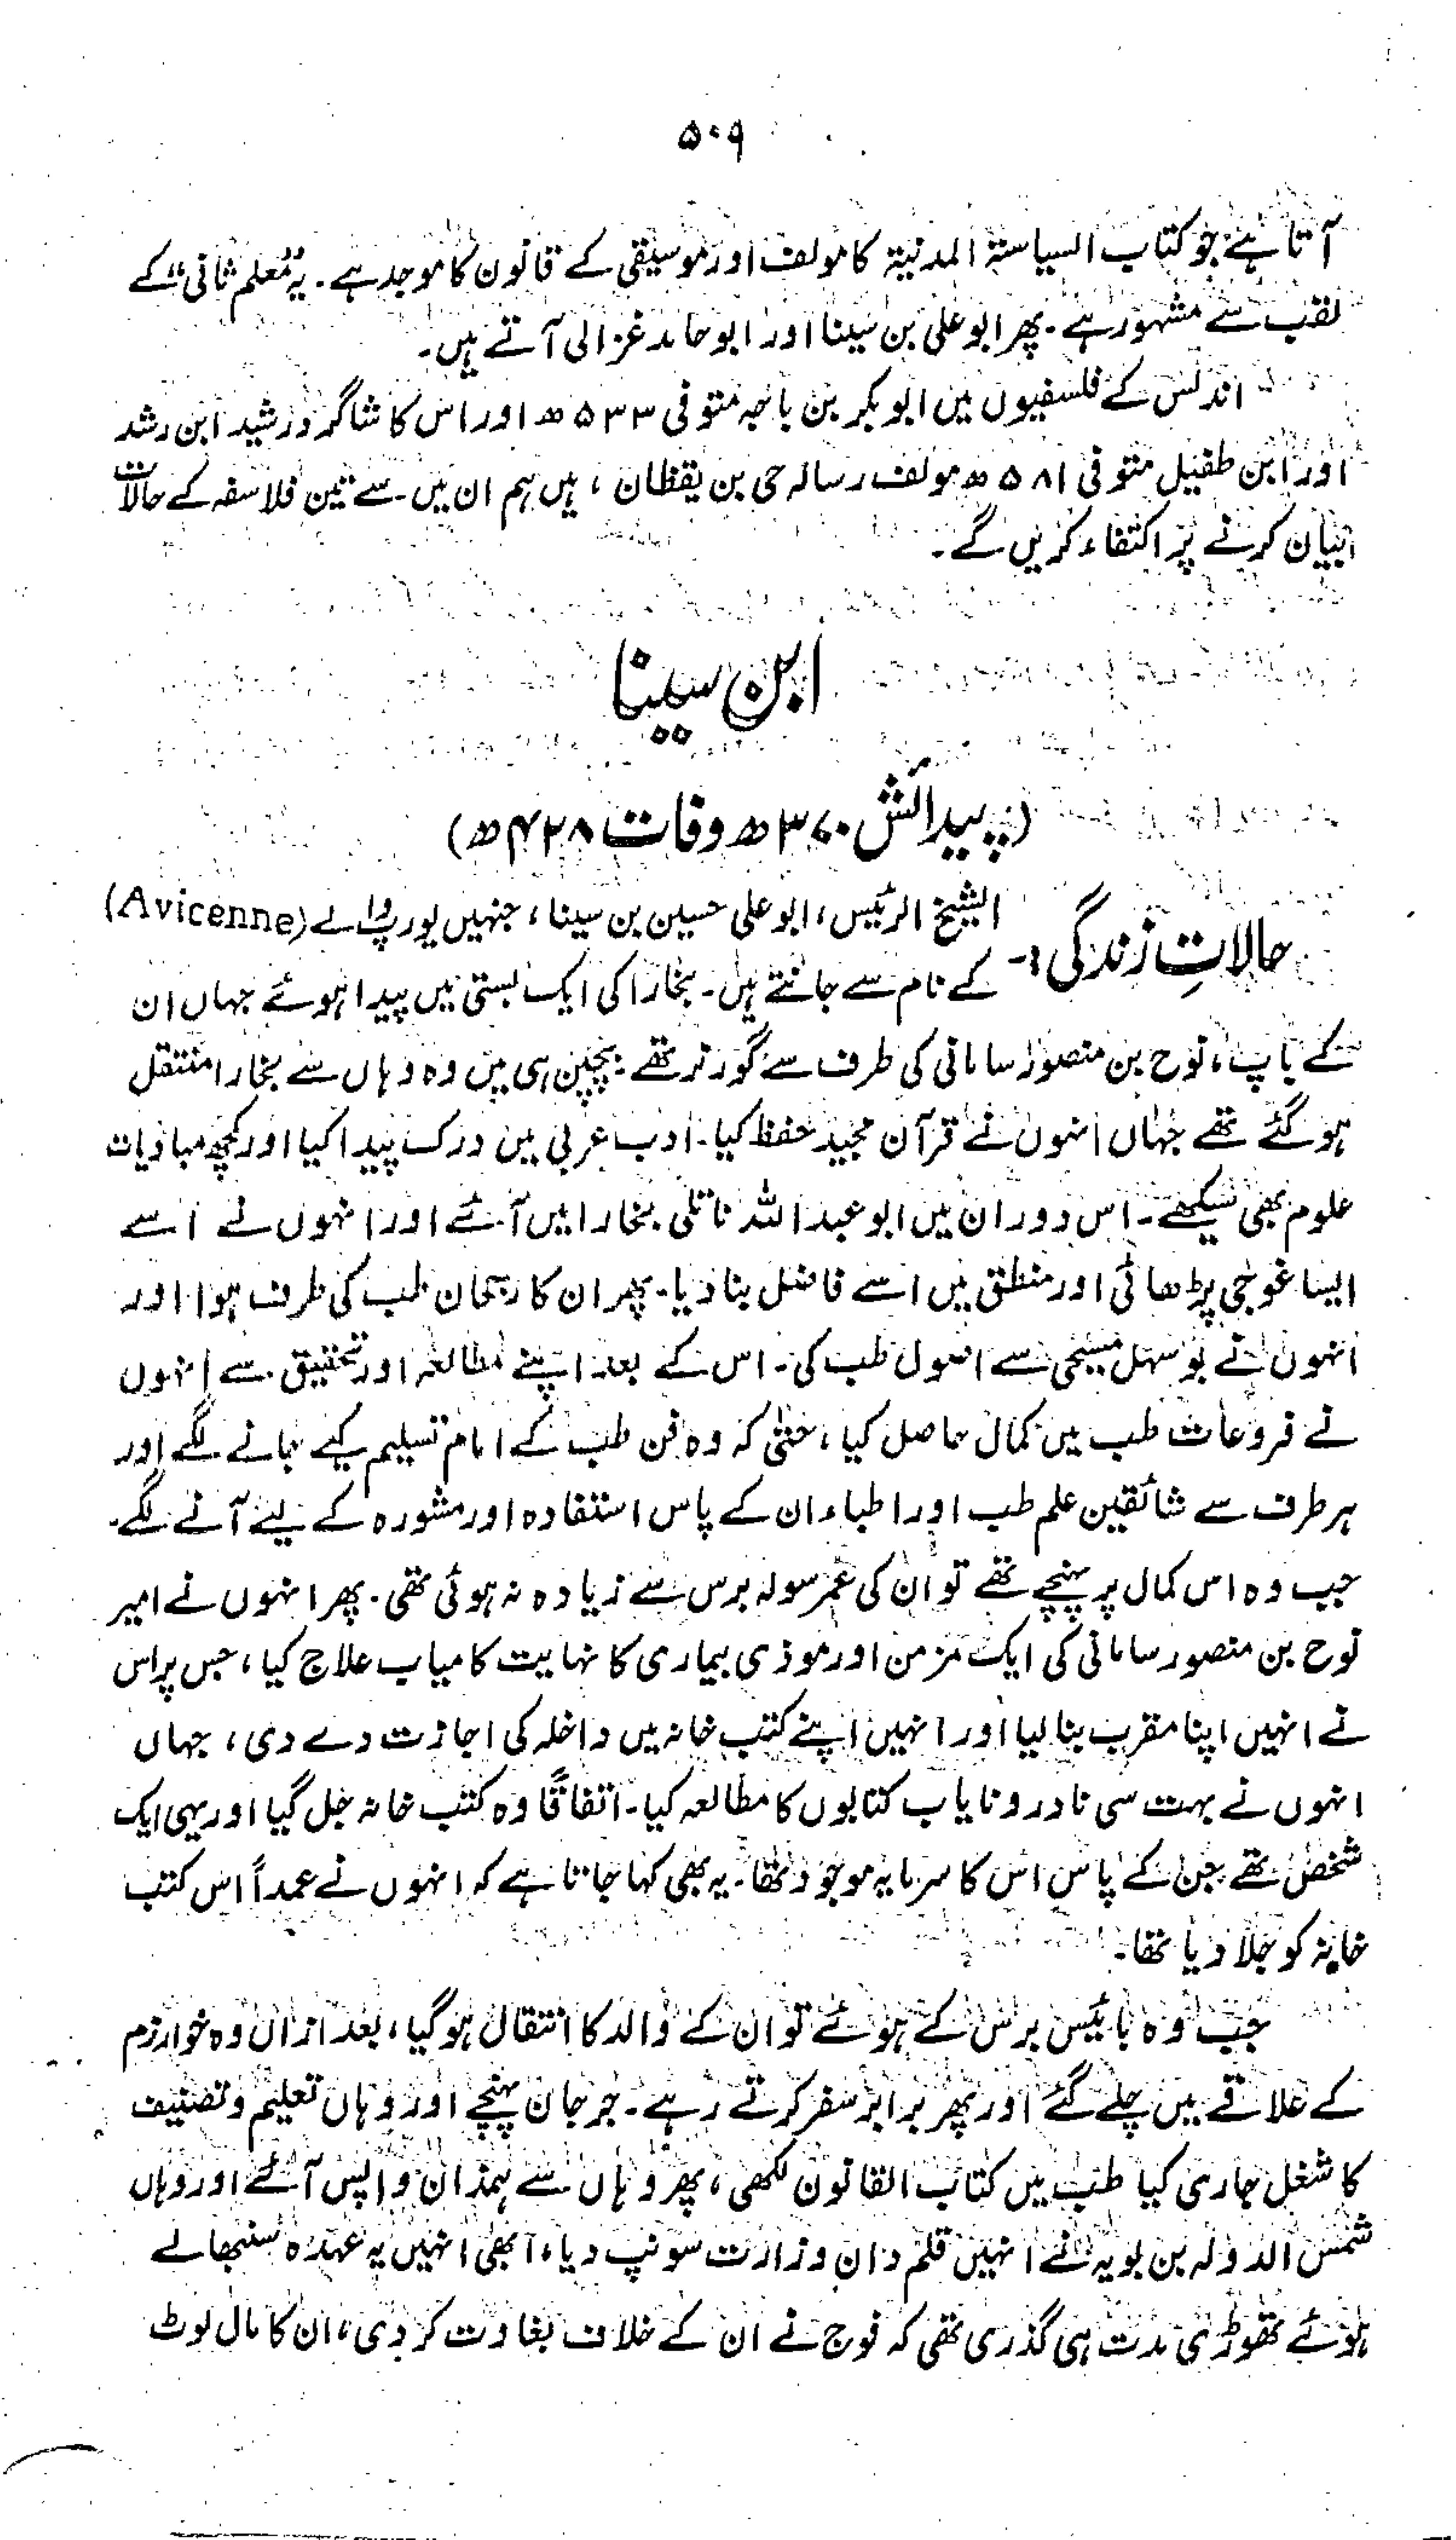 ۵۰۹
آتا ہے جو کتاب السیاستہ المدنیۃ کا مولف اور موسیقی کے قانون کا موجد ہے۔ یہ "معلم ثانی" کے
لقب سے مشہور ہے۔ پھر ابو علی بن سینا اور ابو حامد غزالی آتے ہیں۔
اندلس کے فلسفیوں میں ابو بکر بن باجہ متوفی ۵۳۳ھ اور اس کا شاگرد رشید ابن رشد
اور ابن طفیل متوفی ۵۸۱ھ مولف رسالہ حی بن یقظان، ہیں ہم ان میں سے تین فلاسفہ کے حالات
بیان کرنے پر اکتفاء کریں گے۔
ابن سینا
(پیدائش ۳۷۰ھ وفات ۴۲۸ھ)
حالاتِ زندگی :- الشیخ الرئیس، ابو علی حسین بن سینا، جنہیں یورپ والے (Avicenne)
کے نام سے جانتے ہیں۔ بخارا کی ایک بستی میں پیدا ہوئے جہاں ان
کے باپ، نوح بن منصور سامانی کی طرف سے گورنر تھے۔ بچپن ہی میں وہ وہاں سے بخارا منتقل
ہو گئے تھے جہاں انہوں نے قرآن مجید حفظ کیا۔ ادب عربی میں درک پیدا کیا اور کچھ مبادیات
علوم بھی سیکھے۔ اس دوران میں ابو عبد اللہ ناتلی بخارا میں آئے اور انہوں نے اسے
ایسا غوجی پڑھائی اور منطق میں اسے فاضل بنا دیا۔ پھر ان کا رجحان طب کی طرف ہوا اور
انہوں نے بو سہل مسیحی سے اصول طب کی۔ اس کے بعد اپنے مطالعہ اور تحقیق سے انہوں
نے فروعات طب میں کمال حاصل کیا، حتیٰ کہ وہ فن طب کے امام تسلیم کیے جانے لگے اور
ہر طرف سے شائقین علم طب اور اطباء ان کے پاس استفادہ اور مشورہ کے لیے آنے لگے۔
جب وہ اس کمال پر پہنچے تھے تو ان کی عمر سولہ برس سے زیادہ نہ ہوئی تھی۔ پھر انہوں نے امیر
نوح بن منصور سامانی کی ایک مزمن اور موذی بیماری کا نہایت کامیاب علاج کیا، جس پر اس
نے انہیں اپنا مقرب بنا لیا اور انہیں اپنے کتب خانہ میں داخلہ کی اجازت دے دی، جہاں
انہوں نے بہت سی نادر و نایاب کتابوں کا مطالعہ کیا۔ اتفاقاً وہ کتب خانہ جل گیا اور یہی ایک
شخص تھے جن کے پاس اس کا سرمایہ موجود تھا۔ یہ بھی کہا جاتا ہے کہ انہوں نے عمداً اس کتب
خانہ کو جلا دیا تھا۔
جب وہ بائیس برس کے ہوئے تو ان کے والد کا انتقال ہو گیا، بعد ازاں وہ خوارزم
کے علاقے میں چلے گئے اور پھر برابر سفر کرتے رہے۔ جرجان پہنچے اور وہاں تعلیم و تصنیف
کا شغل جاری کیا طب میں کتاب القانون لکھی، پھر وہاں سے ہمذان واپس آئے اور وہاں
شمس الدولہ بن بویہ نے انہیں قلم دان وزارت سونپ دیا، ابھی انہیں یہ عہدہ سنبھالے
ہوئے تھوڑی مدت ہی گذری تھی کہ فوج نے ان کے خلاف بغاوت کر دی، ان کا مال لوٹ